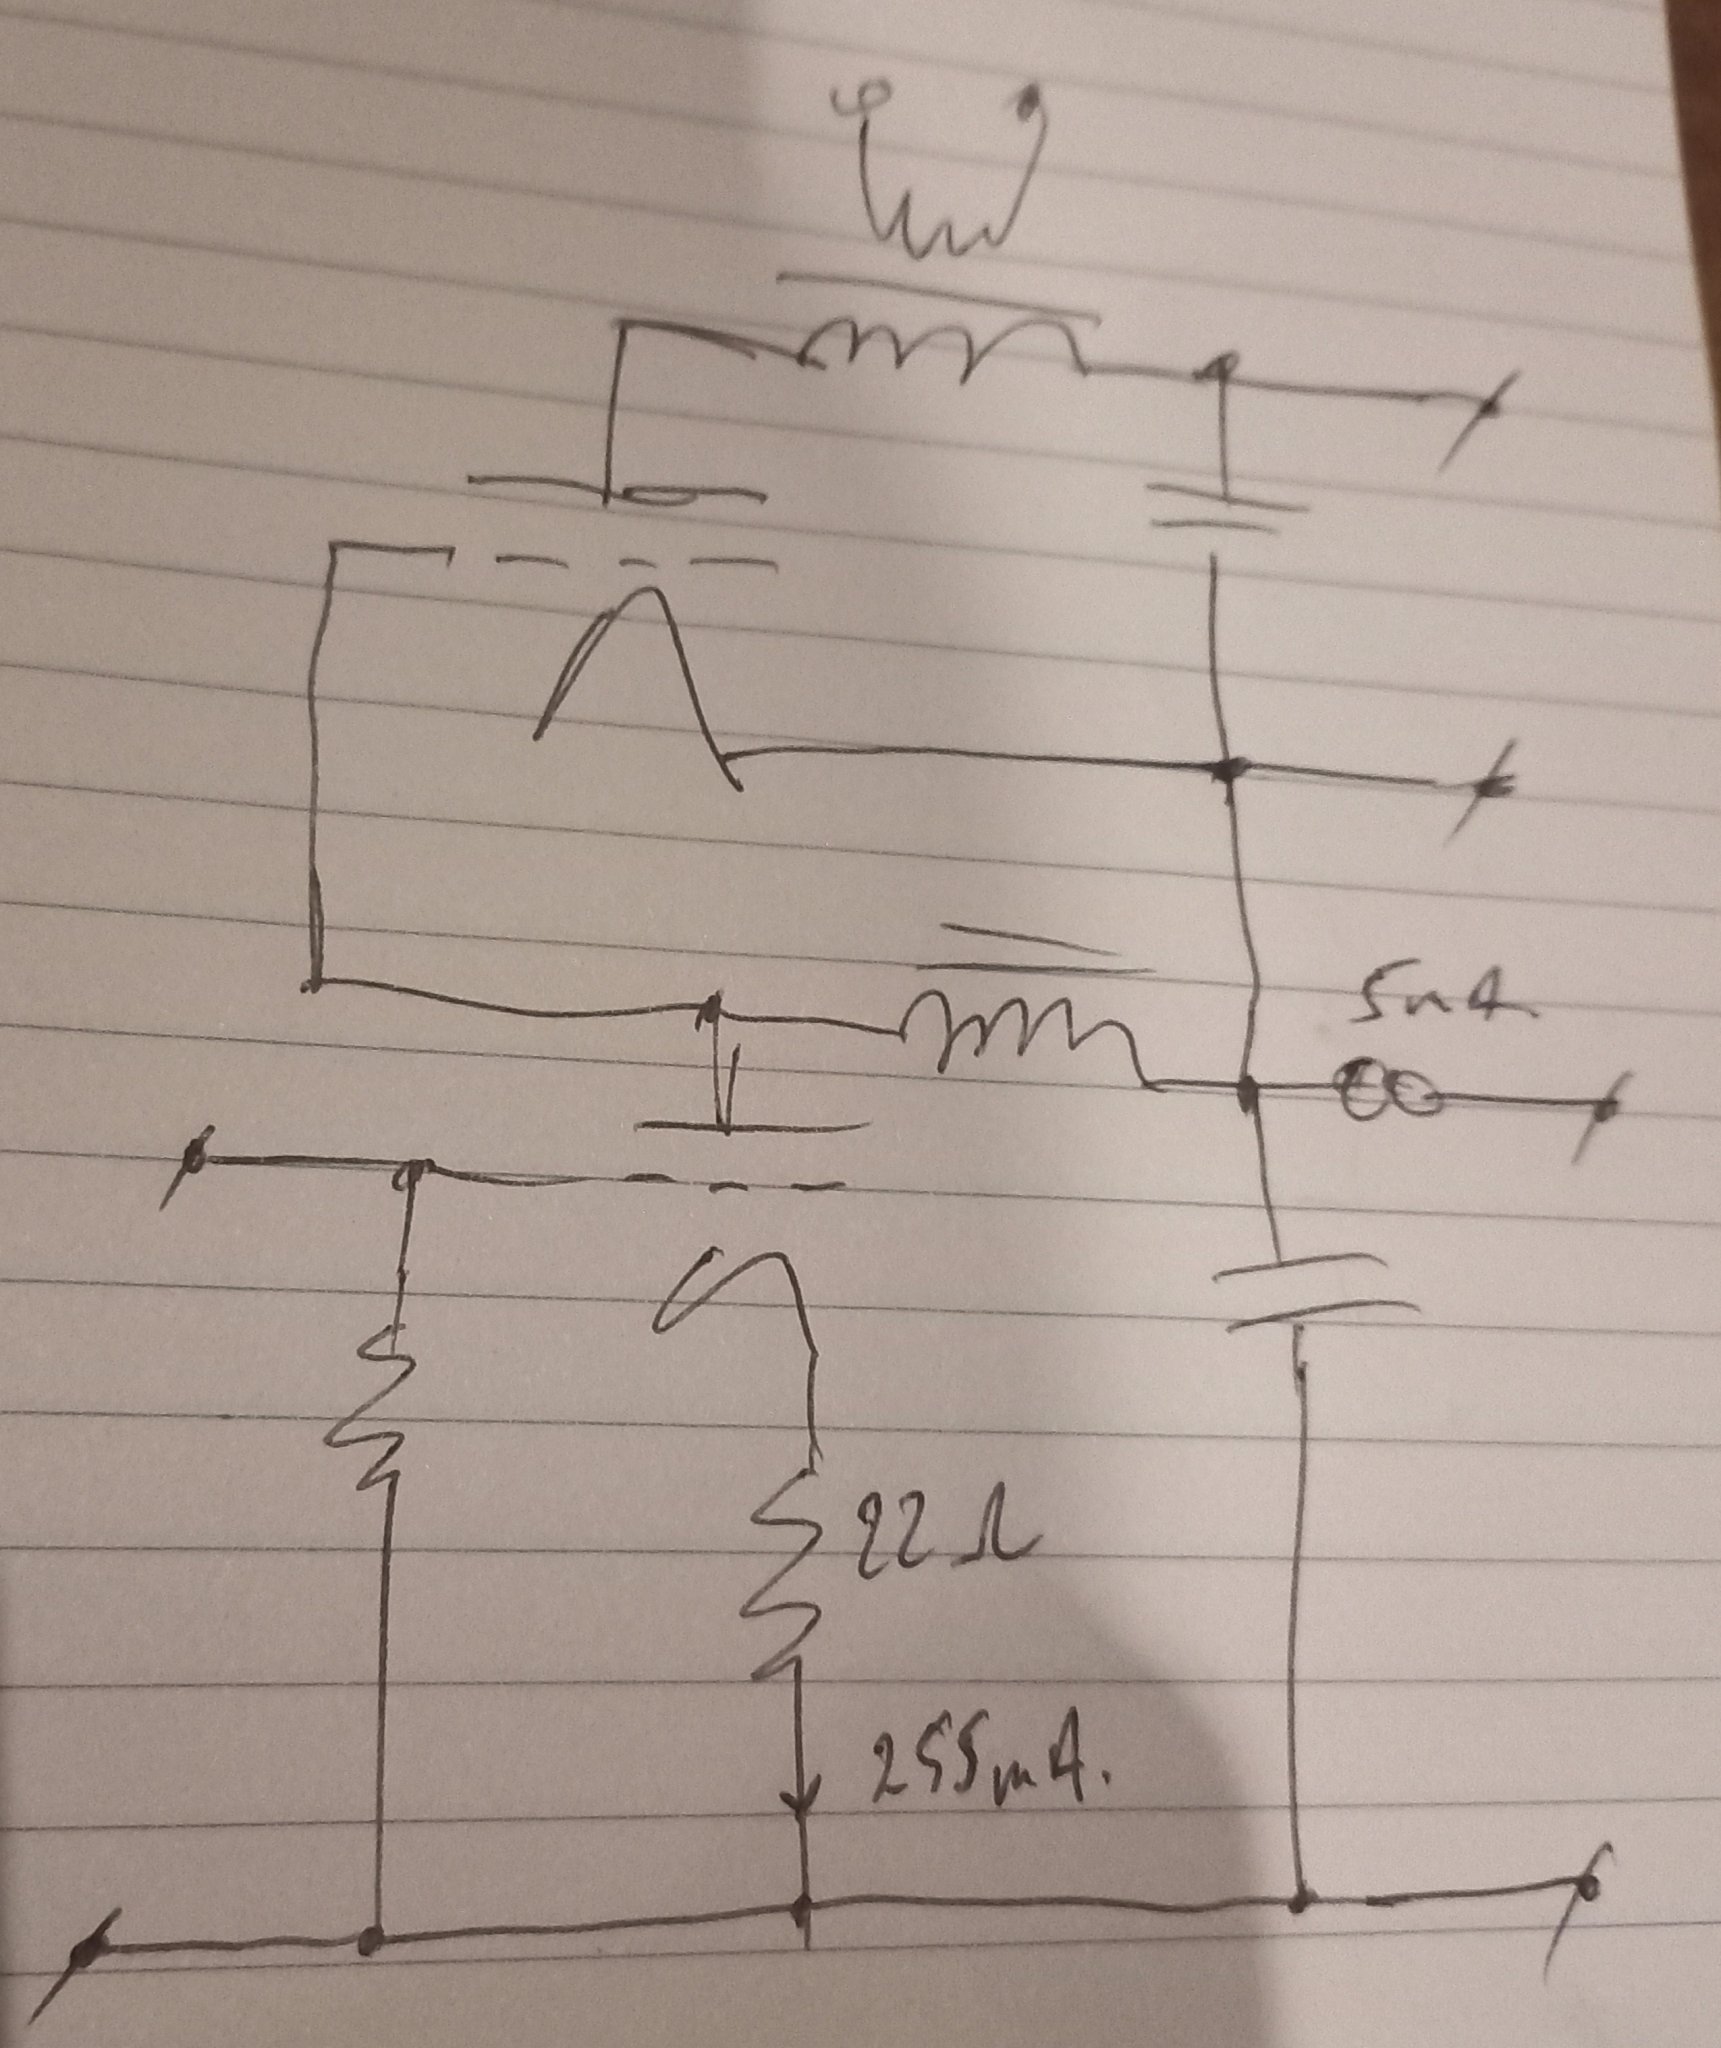 5mA
22Ω
255mA.